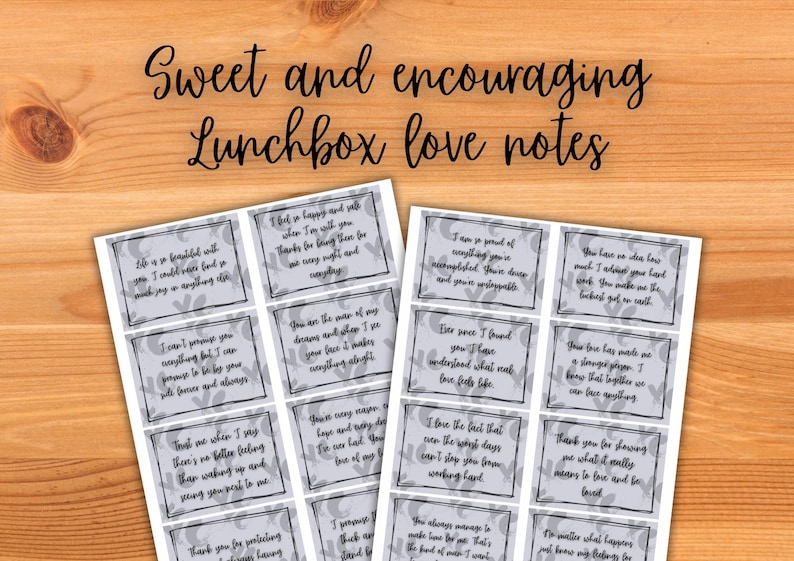 Sweet and encouraging
Lunchbox love notes
Life is so beautiful with
you. I could never find so
much joy in anything else.
I feel so happy and safe
when I'm with you.
Thanks for being there for
me every night and
everyday.
I can't promise you
everything but I can
promise to be by your
side forever and always.
You are the man of my
dreams and when I see
your face it makes
everything alright.
Trust me when I say
there's no better feeling
than waking up and
seeing you next to me.
You're every reason, e
hope and every dre
I've ever had. You
love of my l
Thank you for protecting
always having
I promise t
thick an
stand b
I am so proud of
everything you've
accomplished. You're driven
and you're unstoppable.
You have no idea how
much I admire your hard
work. You make me the
luckiest girl on earth.
Ever since I found
you I have
understood what real
love feels like.
Your love has made me
a stronger person. I
know that together we
can face anything.
I love the fact that
even the worst days
can't stop you from
working hard.
Thank you for showing
me what it really
means to love and be
loved.
You always manage to
make time for me. That's
the kind of man I want
No matter what happens
just know my feelings for